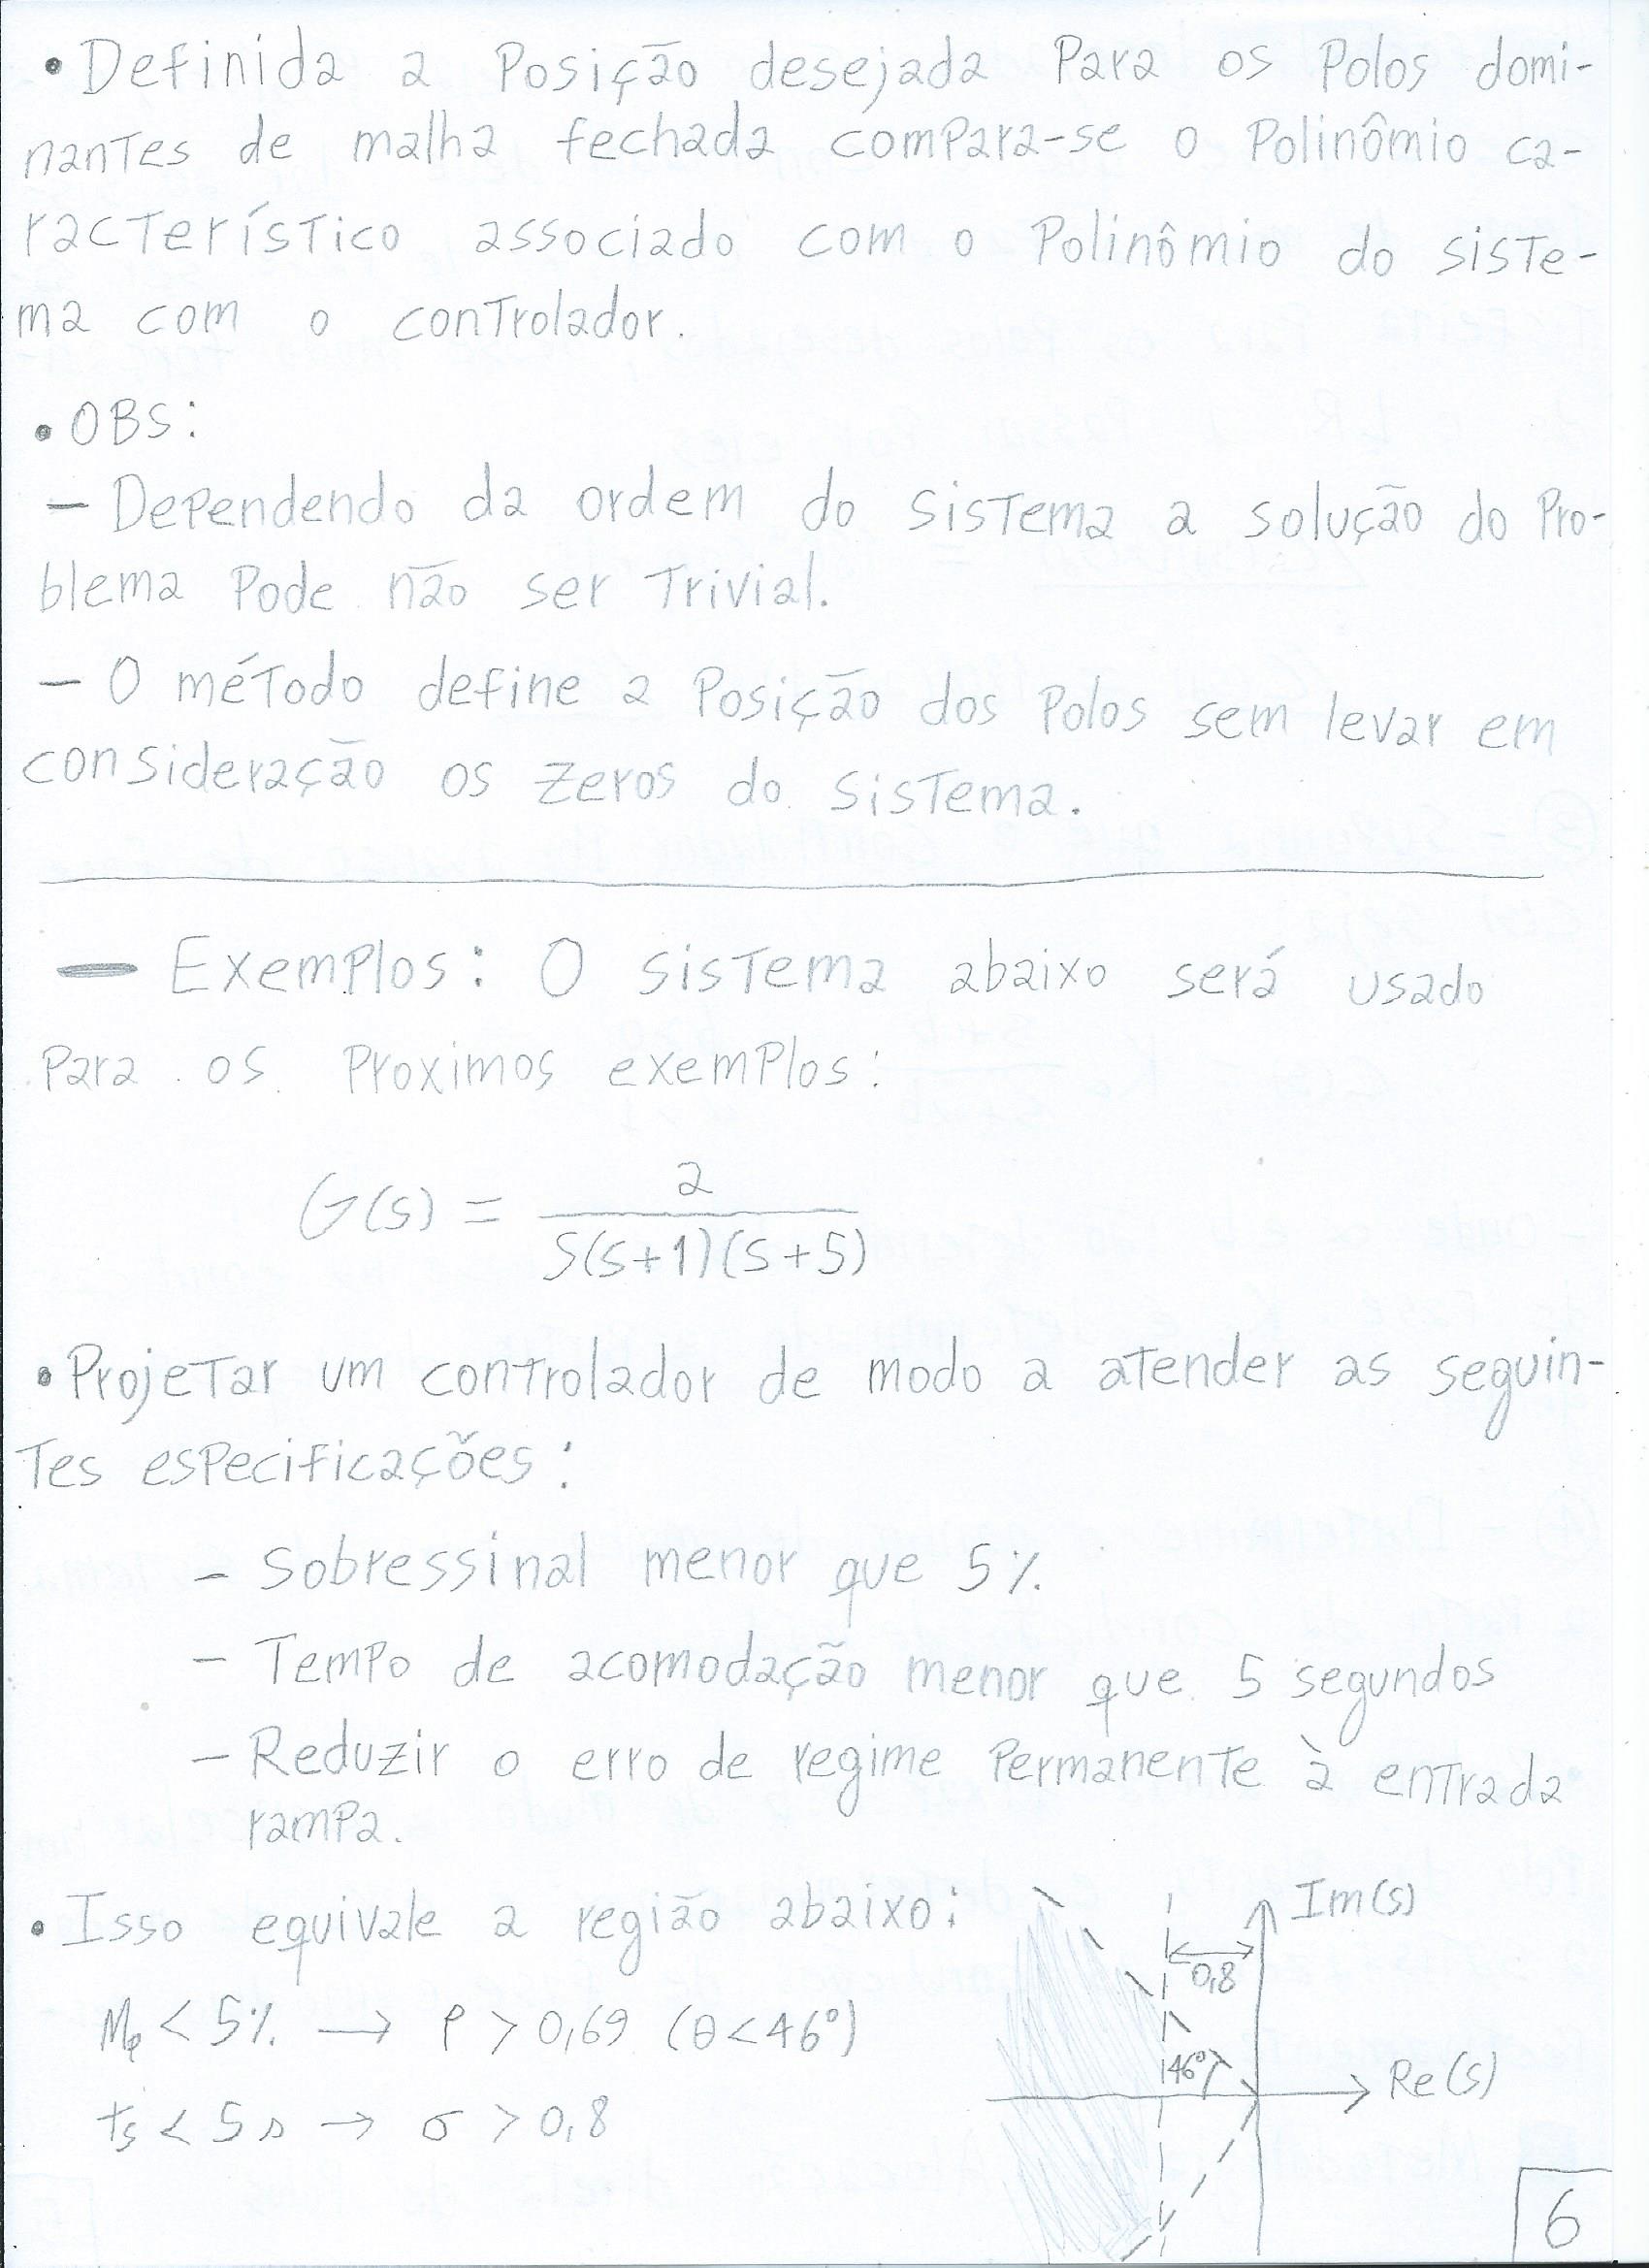 • Definida a Posição desejada Para os Polos domi-
nantes de malha fechada compara-se o Polinômio ca-
racterístico associado com o Polinômio do siste-
ma com o controlador.
• OBS:
- Dependendo da ordem do sistema a solução do Pro-
blema Pode não ser trivial.
- O método define a Posição dos Polos sem levar em
consideração os zeros do sistema.
- Exemplos: O sistema abaixo será usado
Para os Proximos exemplos:
G(s) = 2 / S(s+1)(s+5)
• Projetar um controlador de modo a atender as seguin-
tes especificações:
- Sobressinal menor que 5%
- Tempo de acomodação menor que 5 segundos
- Reduzir o erro de regime Permanente à entrada
rampa.
• Isso equivale a região abaixo:
Mp < 5% → ρ > 0,69 (θ < 46°)
ts < 5s → σ > 0,8
Im(s)
0,8
46°
Re(s)
6